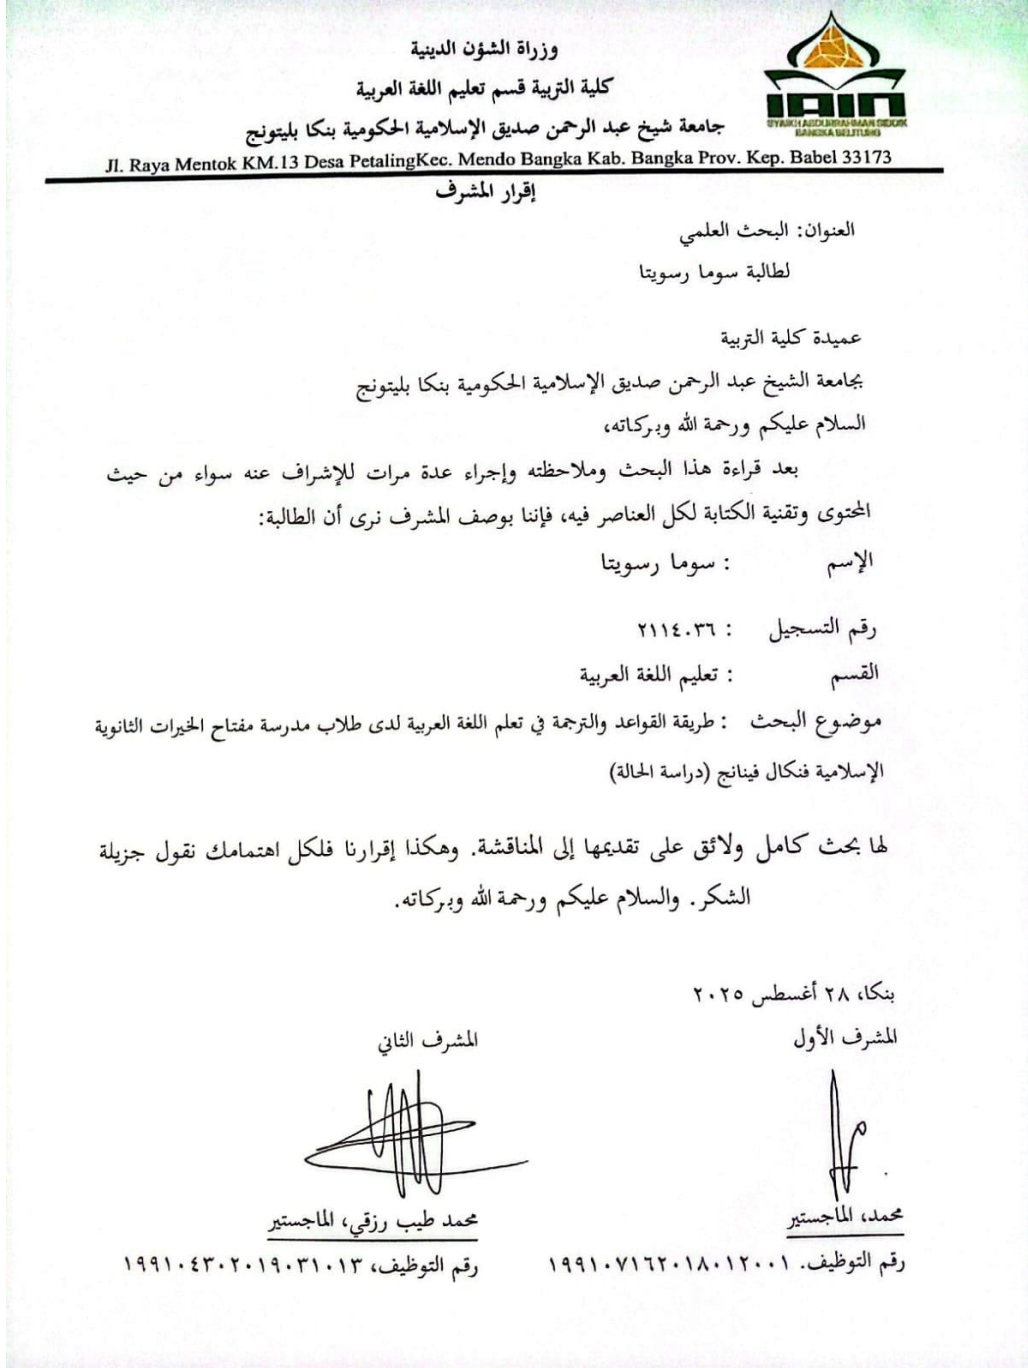 وزراة الشؤن الدينية
كلية التربية قسم تعليم اللغة العربية
جامعة شيخ عبد الرحمن صديق الإسلامية الحكومية بنكا بليتونج
IAIN
SYAIKH ABDURRAHMAN SIDDIK
BANGKA BELITUNG
Jl. Raya Mentok KM.13 Desa PetalingKec. Mendo Bangka Kab. Bangka Prov. Kep. Babel 33173
إقرار المشرف
العنوان: البحث العلمي
لطالبة سوما رسويتا
عميدة كلية التربية
بجامعة الشيخ عبد الرحمن صديق الإسلامية الحكومية بنكا بليتونج
السلام عليكم ورحمة الله وبركاته،
بعد قراءة هذا البحث وملاحظته وإجراء عدة مرات للإشراف عنه سواء من حيث
المحتوى وتقنية الكتابة لكل العناصر فيه، فإننا بوصف المشرف نرى أن الطالبة:
الإسم : سوما رسويتا
رقم التسجيل : ٢١١٤٠٣٦
القسم : تعليم اللغة العربية
موضوع البحث : طريقة القواعد والترجمة في تعلم اللغة العربية لدى طلاب مدرسة مفتاح الخيرات الثانوية
الإسلامية فنكال فينانج (دراسة الحالة)
لها بحث كامل ولائق على تقديمها إلى المناقشة. وهكذا إقرارنا فلكل اهتمامك نقول جزيلة
الشكر. والسلام عليكم ورحمة الله وبركاته.
بنكا، ٢٨ أغسطس ٢٠٢٥
المشرف الأول
المشرف الثاني
محمد، الماجستير
محمد طيب رزقي، الماجستير
رقم التوظيف. ١٩٩١٠٧١٦٢٠١٨٠١٢٠٠١
رقم التوظيف، ١٩٩١٠٤٣٠٢٠١٩٠٣١٠١٣